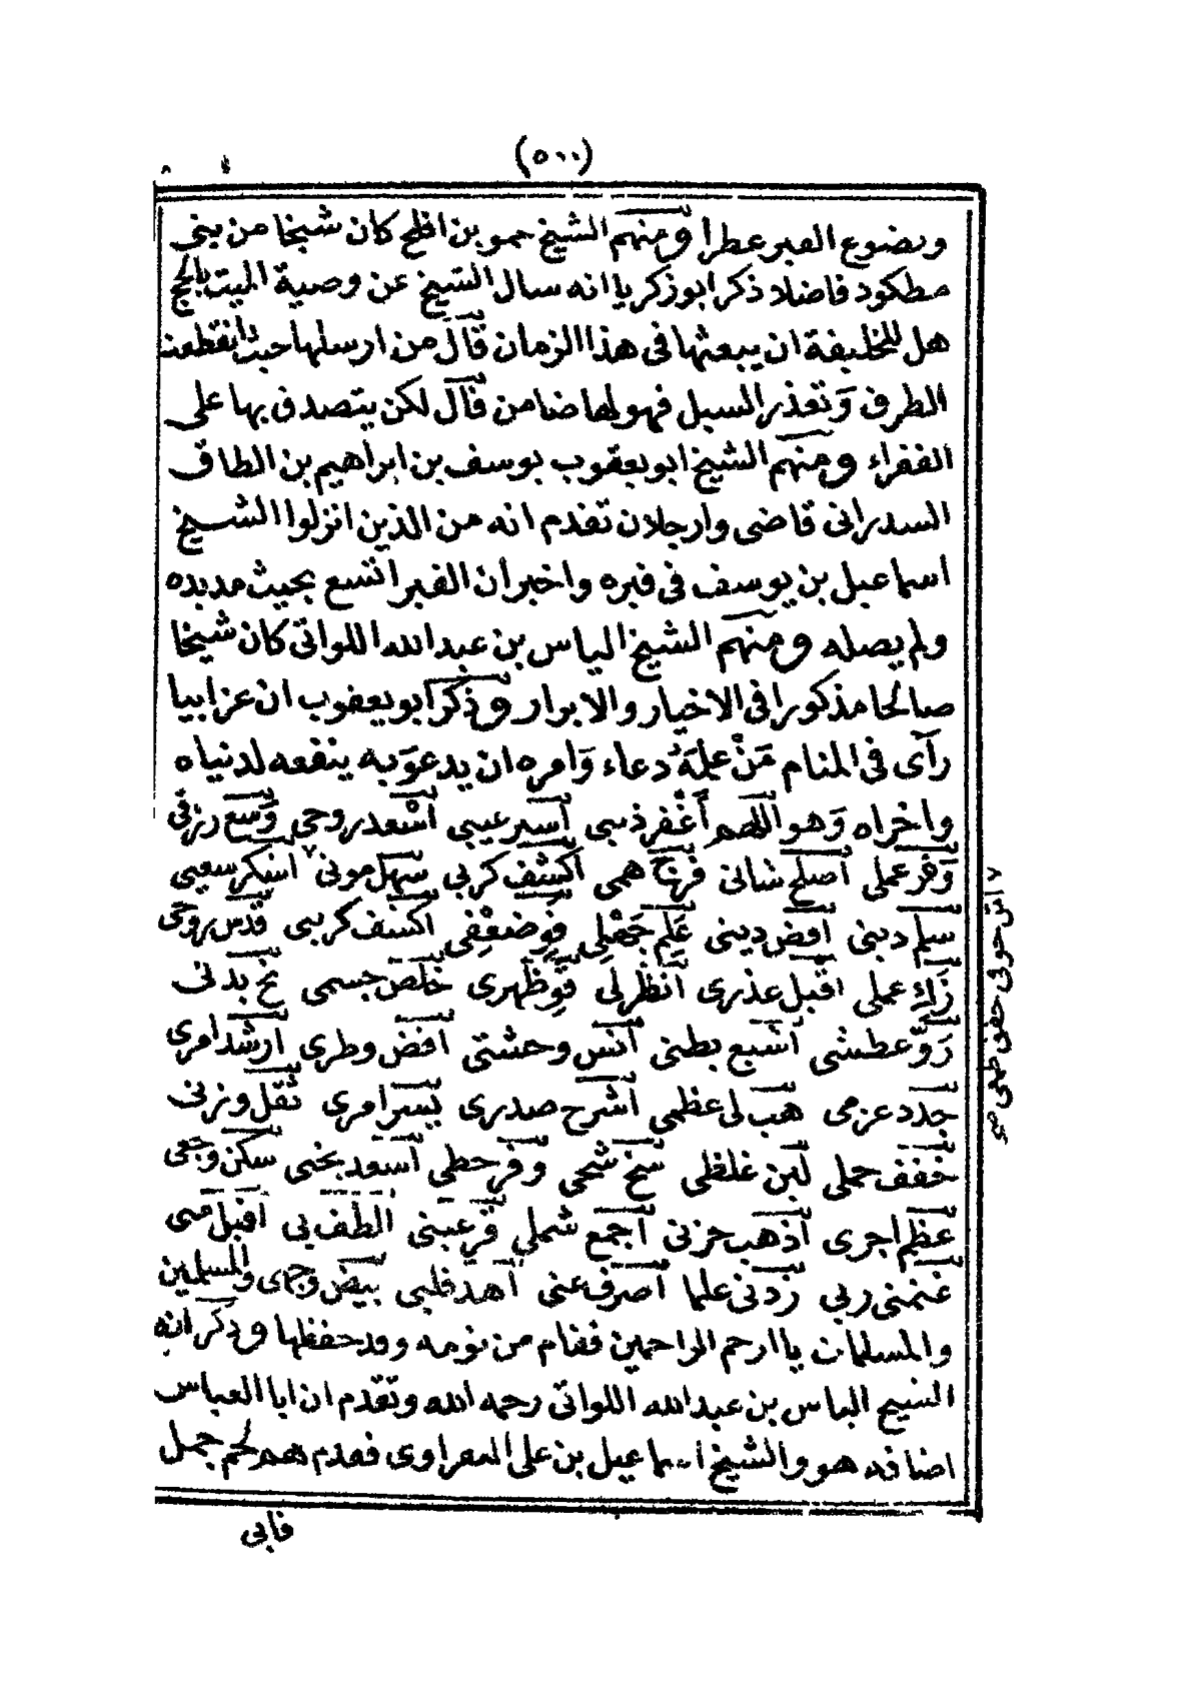 (٥٠٠)
ويضوع العبير عطرا ومنهم الشيخ حمو بن افلح كان شيخا من بني
مطكود فاضلا ذكر ابو زكريا انه سال الشيخ عن وصية الميت بالحج
هل للخليفة ان يبعثها فى هذا الزمان قال من ارسلها حيث انقطعت
الطرق وتعذر السبل فهو لها ضامن قال لكن يتصدق بها على
الفقراء ومنهم الشيخ ابو يعقوب يوسف بن ابراهيم بن الطاق
السدراتى قاضى وارجلان تقدم انه من الذين انزلوا الشيخ
اسماعيل بن يوسف فى قبره واخبر ان القبر اتسع بحيث مد يده
ولم يصله ومنهم الشيخ الياس بن عبد الله اللواتى كان شيخا
صالحا مذكورا فى الاخيار والابرار وذكر ابو يعقوب ان عزابيا
رآى فى المنام مَنْ علمه دعاء وَامره ان يدعو به ينفعه لدنياه
واخراه وَهو اللهم أَغْفر ذنبى آستر عيبى آسْعد روحى وَسع رزقى
وَفر عملى آصلح شانى فرج همى آكشف كربى سهل مونى ٧ اشكر سعيى
سلم دينى آقض دينى عَلِم جَهْلى قوِ ضعفى اكشف كربى قدس روحى
زَاكِ عملى اقبل عذرى آنظر لى قوِ ظهرى خلص جسمى نج بدنى
رَوِّ عطشى آشبع بطنى آنس وحشتى آقض وطرى ارشد امرى
جدد عزمى هب لى عظمى آشرح صدرى يسر امرى ثقل وزنى
خفف حملى لين غلظى شح وفر حظى آسعد بختى سكن وجعى
عظم اجرى آذهب حزنى آجمع شملى قر عينى الطف بى آقبل منى
غنمنى ربى زدنى علما آصرف عنى آهد قلبى بيض وجهى والمسلمين
والمسلمات يا ارحم الراحمين فقام من نومه وقد حفظها وذكر انه
الشيخ الياس بن عبد الله اللواتى رحمه الله وتقدم ان ابا العباس
اضافه هو والشيخ اسماعيل بن على النفراوى فقدم لهم لحم جمل
فابى
٧